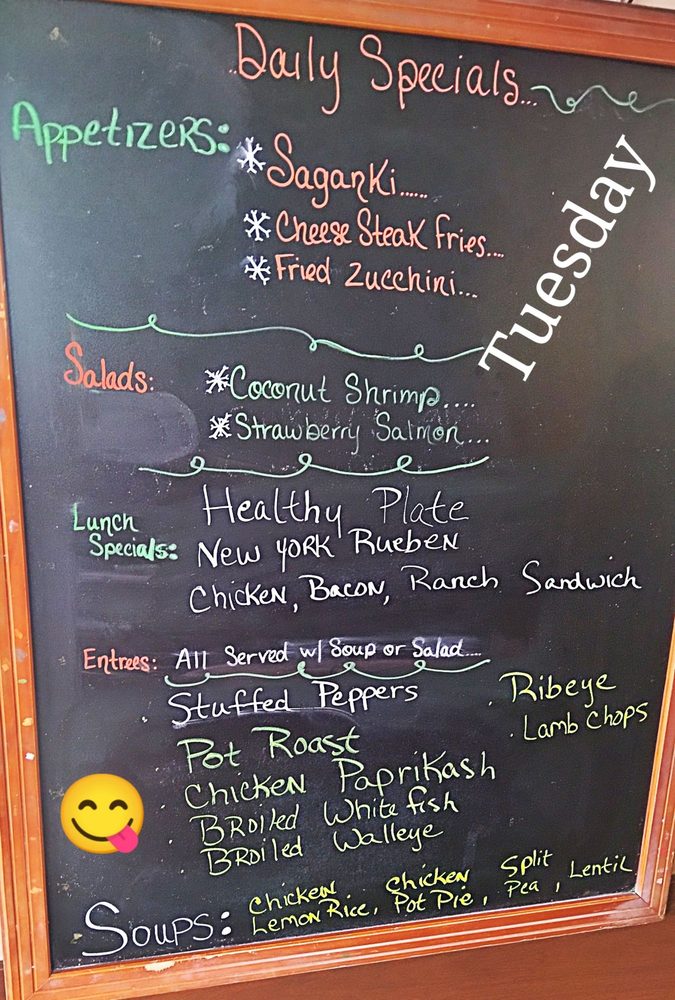 ..Daily Specials...
Tuesday
Appetizers:
*Saganki......
*Cheese Steak Fries....
*Fried Zucchini...
Salads:
*Coconut Shrimp....
*Strawberry Salmon...
Lunch Specials:
Healthy Plate
New York Rueben
Chicken, Bacon, Ranch Sandwich
Entrees: All Served w/ Soup or Salad....
Stuffed Peppers
Pot Roast
Chicken Paprikash
Broiled White fish
Broiled Walleye
. Ribeye
. Lamb Chops
Soups: Chicken Lemon Rice, Chicken Pot Pie, Split Pea, Lentil